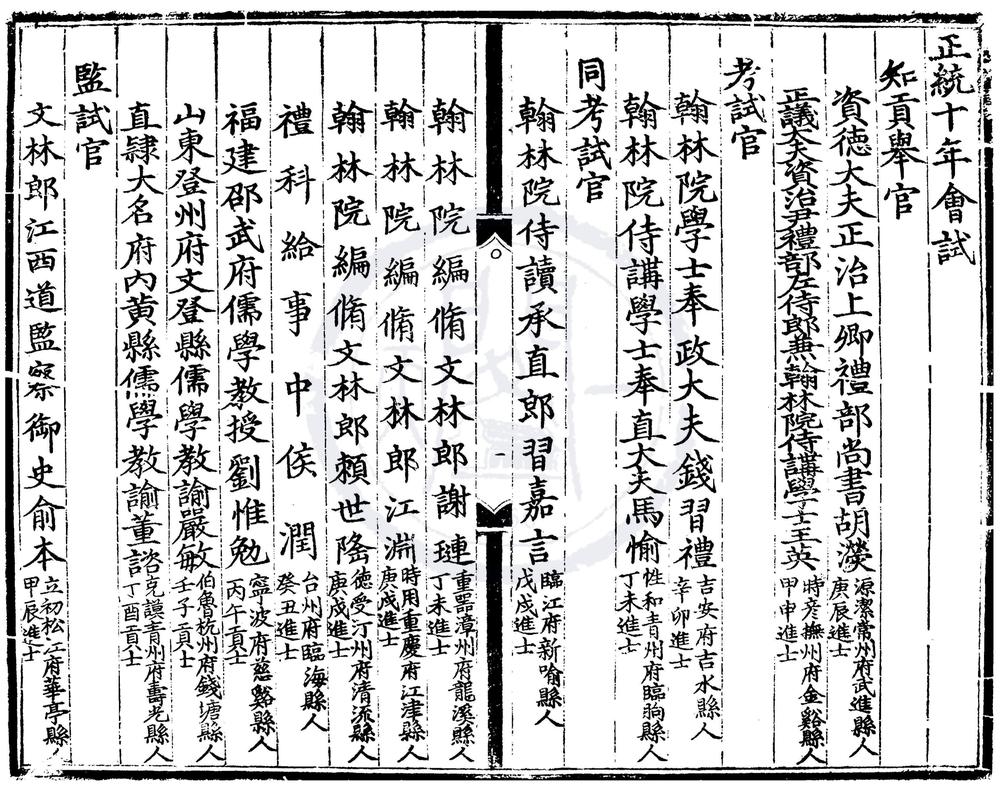 正統十年會試
知貢舉官
資德大夫正治上卿禮部尚書胡濙源潔常州府武進縣人庚辰進士
正議大夫資治尹禮部左侍郎兼翰林院侍講學士王英時彥撫州府金谿縣人甲申進士
考試官
翰林院學士奉政大夫錢習禮吉安府吉水縣人辛卯進士
翰林院侍講學士奉直大夫馬愉性和青州府臨朐縣人丁未進士
同考試官
翰林院侍讀承直郎習嘉言臨江府新喻縣人戊戌進士
翰林院編脩文林郎謝璉重器漳州府龍溪縣人丁未進士
翰林院編脩文林郎江淵時用重慶府江津縣人庚戌進士
翰林院編脩文林郎賴世隆德受汀州府清流縣人庚戌進士
禮科給事中侯潤台州府臨海縣人癸丑進士
福建邵武府儒學教授劉惟勉寧波府慈谿縣人丙午貢士
山東登州府文登縣儒學教諭嚴敏伯魯杭州府錢塘縣人壬子貢士
直隸大名府內黃縣儒學教諭董諮克謨青州府壽光縣人丁酉貢士
監試官
文林郎江西道監察御史俞本立初松江府華亭縣人甲辰進士